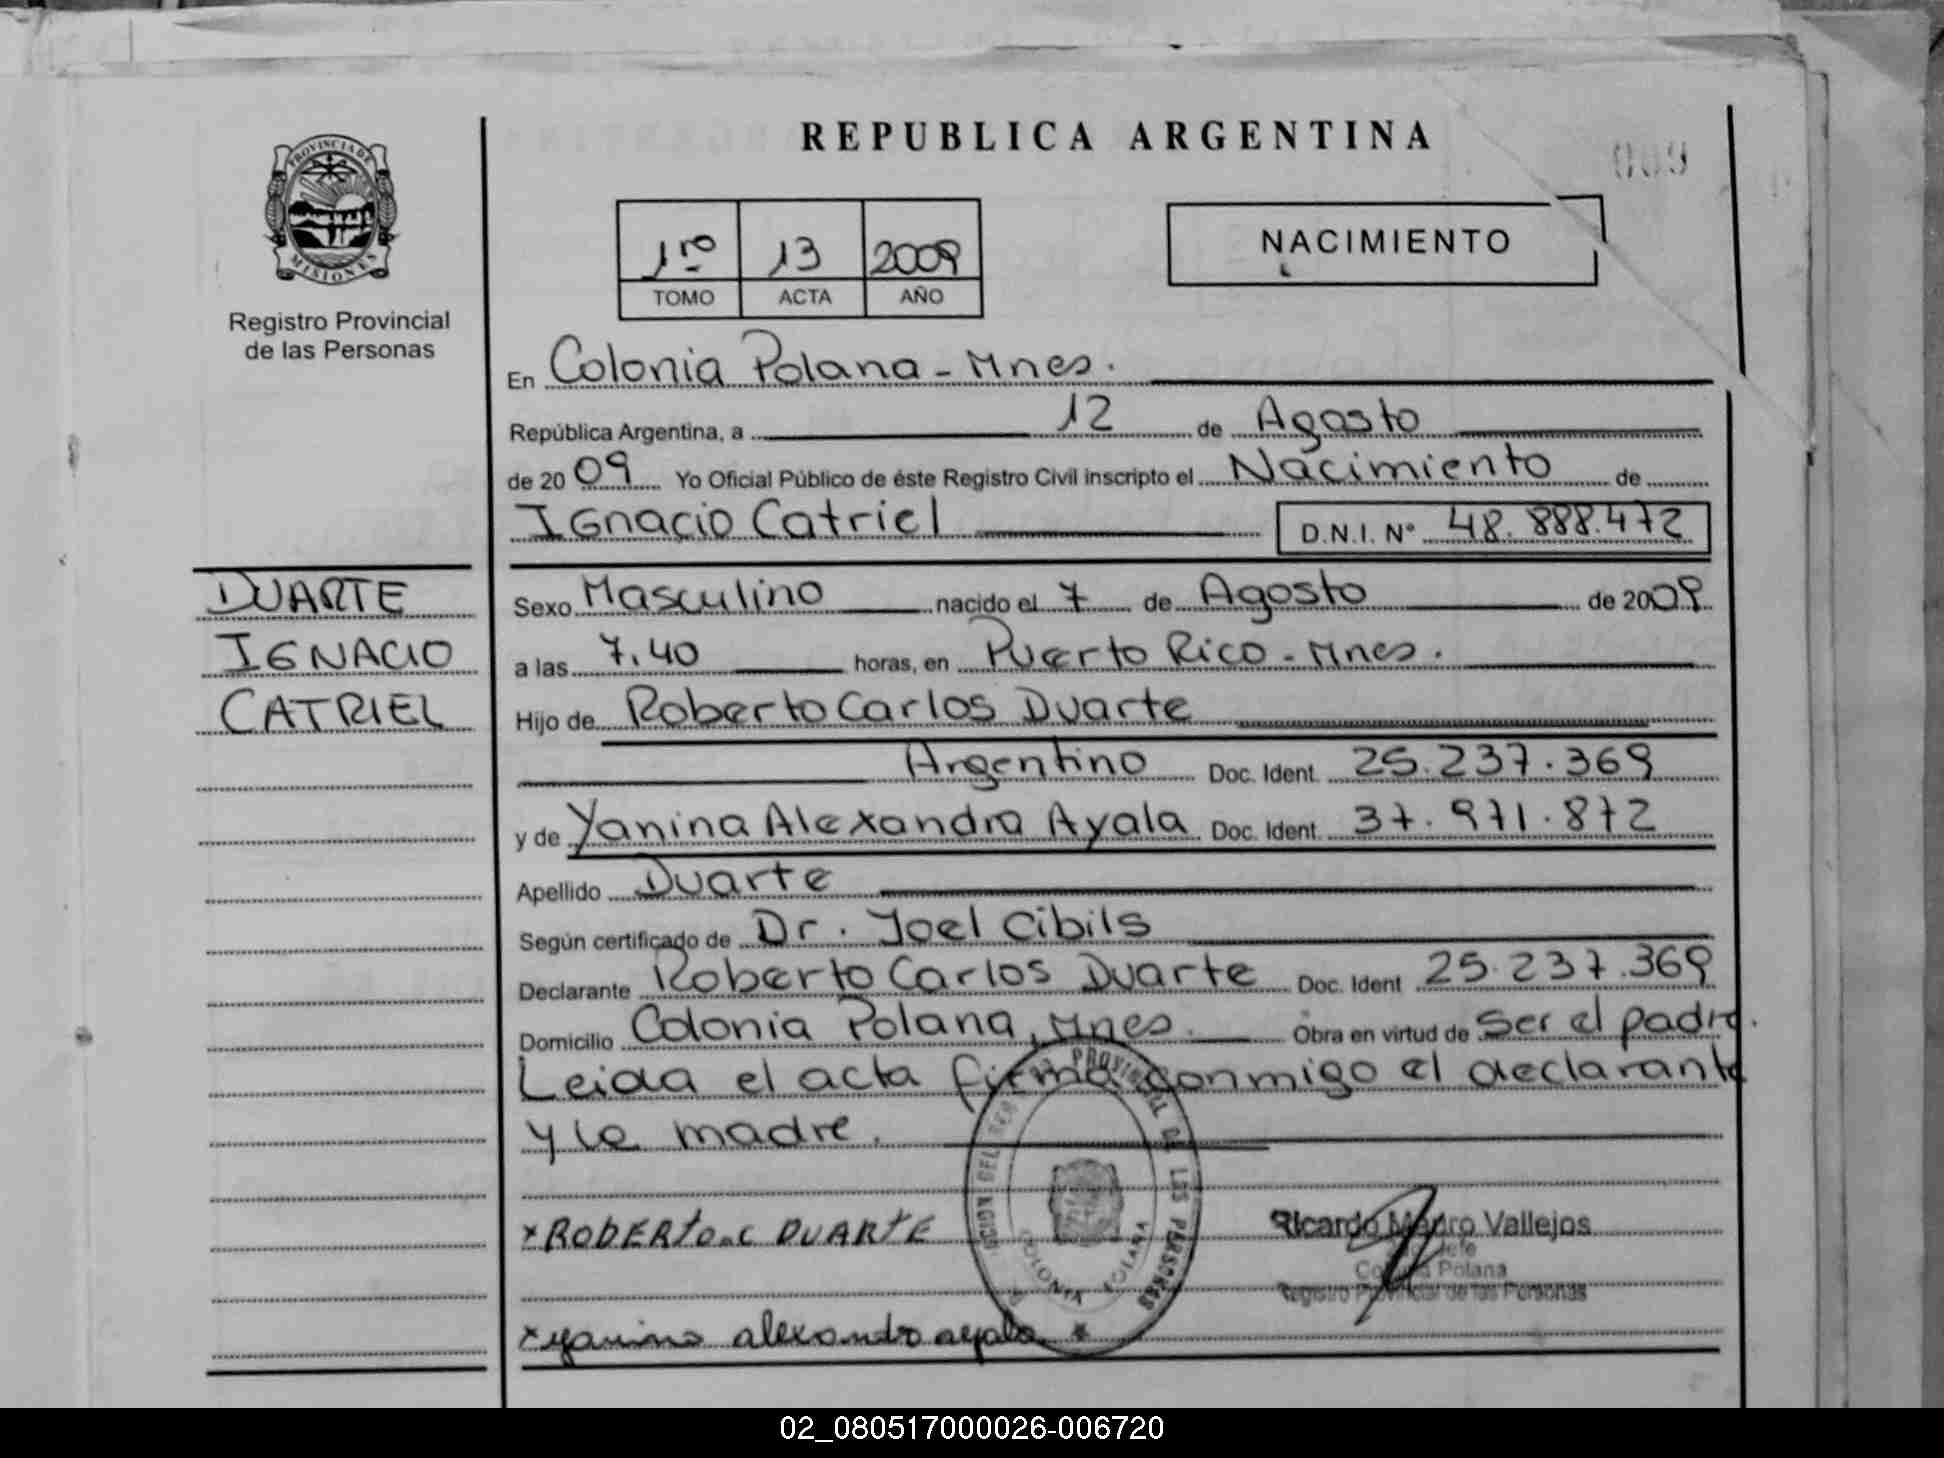 REPUBLICA ARGENTINA
009
PROVINCIA DE
MISIONES
Registro Provincial
de las Personas
1ro 13 2009
TOMO ACTA AÑO
NACIMIENTO
En Colonia Polana - Mnes.
República Argentina, a 12 de Agosto
de 2009 Yo Oficial Público de éste Registro Civil inscripto el Nacimiento de
Ignacio Catriel D.N.I. Nº 48.888.472
DUARTE
IGNACIO
CATRIEL
Sexo Masculino nacido el 7 de Agosto de 2009
a las 7.40 horas, en Puerto Rico - Mnes.
Hijo de Roberto Carlos Duarte
Argentino Doc. Ident. 25.237.369
y de Yanina Alexandra Ayala Doc. Ident. 37.971.872
Apellido Duarte
Según certificado de Dr. Joel Cibils
Declarante Roberto Carlos Duarte Doc. Ident 25.237.369
Domicilio Colonia Polana, Mnes. Obra en virtud de ser el padre.
Leida el acta firma conmigo el declarante
y la madre.
PROVINCIAL DE LAS PERSONAS
COLONIA POLANA
x ROBERTO C DUARTE
Ricardo Mauro Vallejos
Jefe
Colonia Polana
Registro Provincial de las Personas
x yanina alexandra ayala
02_080517000026-006720